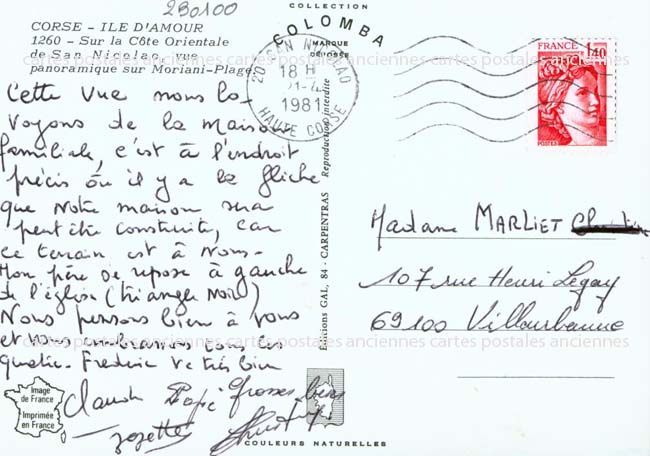 230100
COLLECTION
COLOMBA
MARQUE
DÉPOSÉE
CORSE - ILE D'AMOUR
1260 - Sur la Côte Orientale
de San Nicolao, vue
panoramique sur Moriani-Plage
cartes postales anciennes cartes postales anciennes cartes postales anciennes
20 SAN NICOLAO
18 H
21-4
1981
HAUTE CORSE
FRANCE
1,40
POSTES
Cette vue nous la
voyons de la maison
familiale, c'est à l'endroit
précis où il y a la flèche
que notre maison sera
peut être construite, car
ce terrain est à nous.
Mon père se repose à gauche
de l'église (triangle noir)
Nous pensons bien à vous
et vous embrassons tous les
quatre. Frédéric va très bien
Claude Papi Grosses bises
Jozette
Madame MARLIET
107 rue Henri Legay
69100 Villeurbanne
cartes postales anciennes cartes postales anciennes cartes postales anciennes
Editions GAL, 84 - CARPENTRAS Reproduction interdite
Image
de France
Imprimée
en France
COULEURS NATURELLES